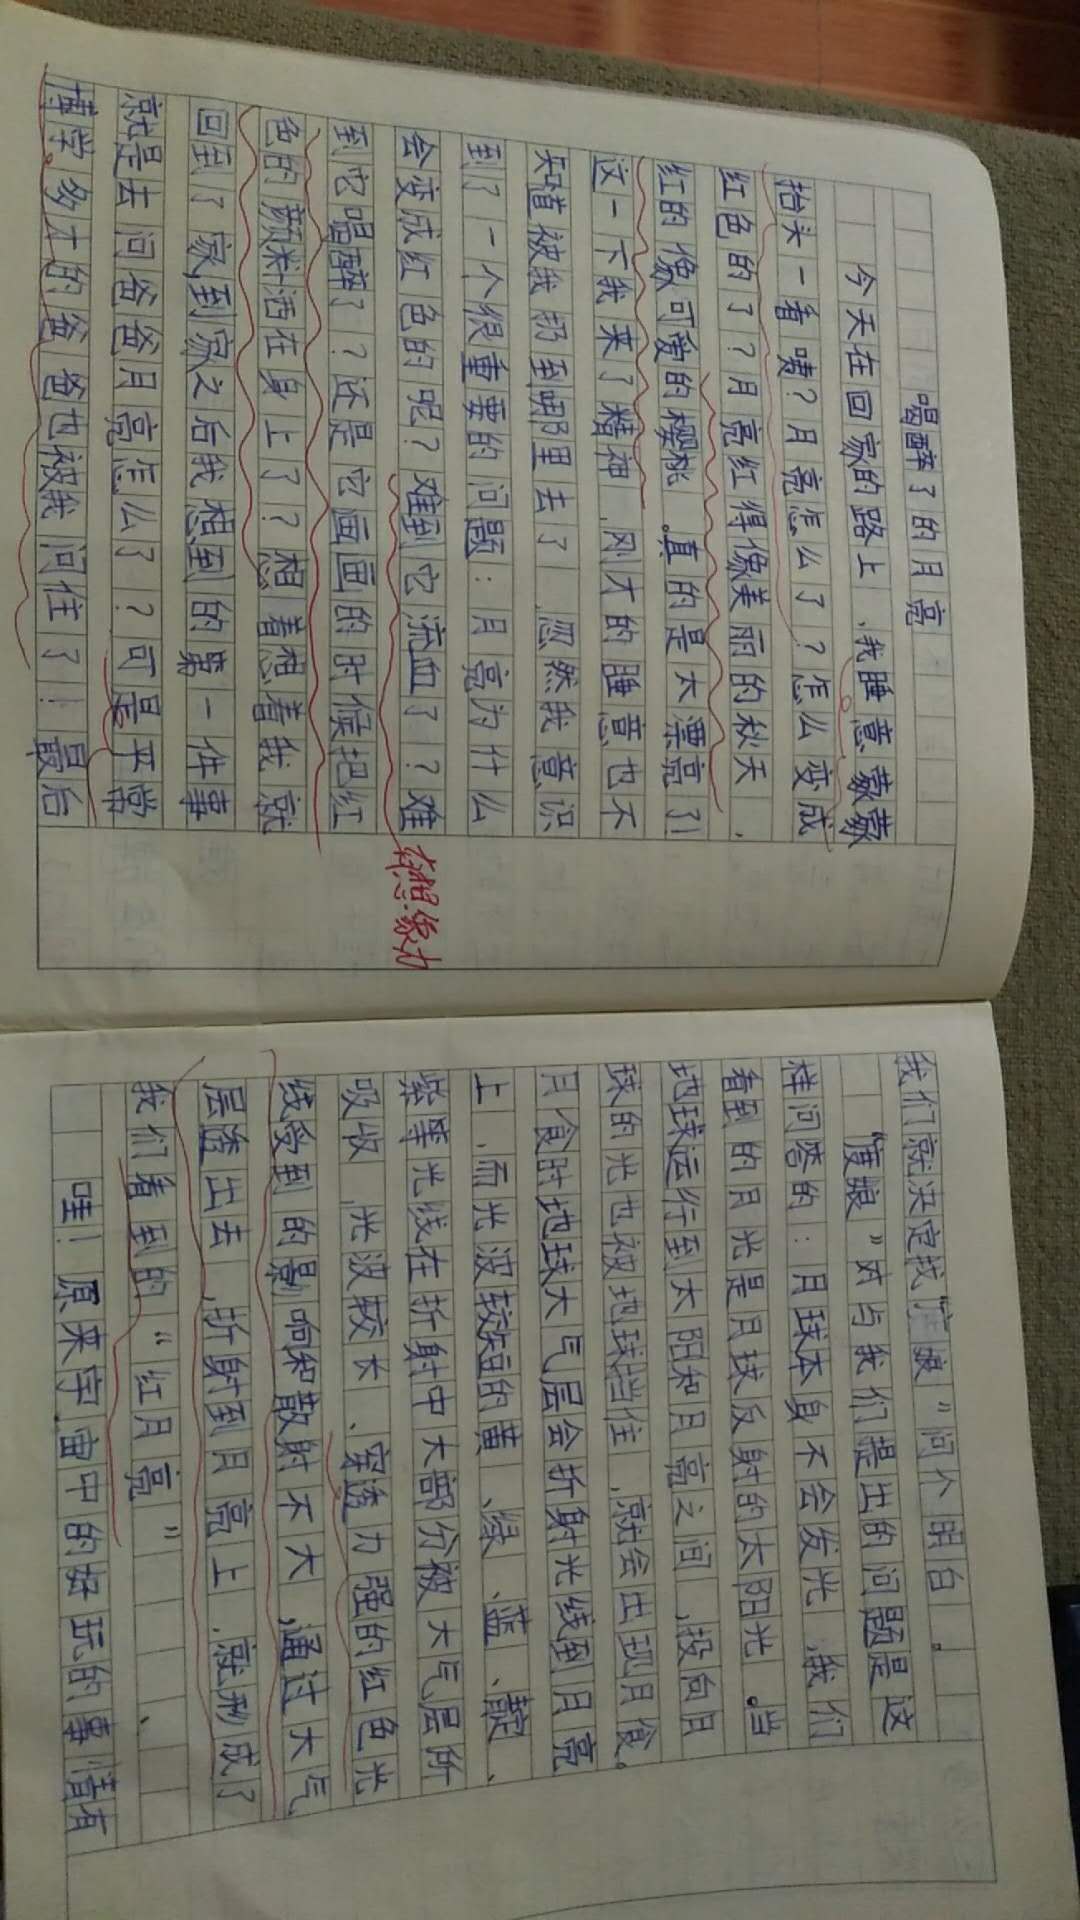 喝醉了的月亮
今天在回家的路上，我睡意蒙蒙
抬头一看咦？月亮怎么了？怎么变成
红色的了？月亮红得像美丽的秋天，
红的像可爱的樱桃。真的是太漂亮了！
这一下我来了精神，刚才的睡意也不
知道被我扔到哪里去了，忽然我意识
到了一个很重要的问题：月亮为什么
会变成红色的呢？难到它流血了？难
到它喝醉了？还是它画画的时候把红
色的颜料洒在身上了？想着想着我就
回到了家，到家之后我想到的第一件事
就是去问爸爸月亮怎么了？可是平常
博学多才的爸爸也被我问住了！最后
有想象力
我们就决定找“度娘”问个明白。
“度娘”对与我们提出的问题是这
样问答的：月球本身不会发光，我们
看到的月光是月球反射的太阳光。当
地球运行到太阳和月亮之间，投向月
球的光也被地球挡住，就会出现月食。
月食时地球大气层会折射光线到月亮
上，而光波较短的黄、绿、蓝、靛、
紫等光线在折射中大部分被大气层所
吸收，光波较大、穿透力强的红色光
线受到的影响和散射不大，通过大气
层透出去，折射到月亮上，就形成了
我们看到的“红月亮”、
哇！原来宇宙中的好玩的事情有